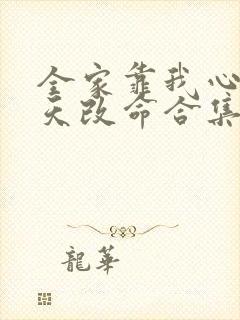 全家靠我心
天改命合集
龍華